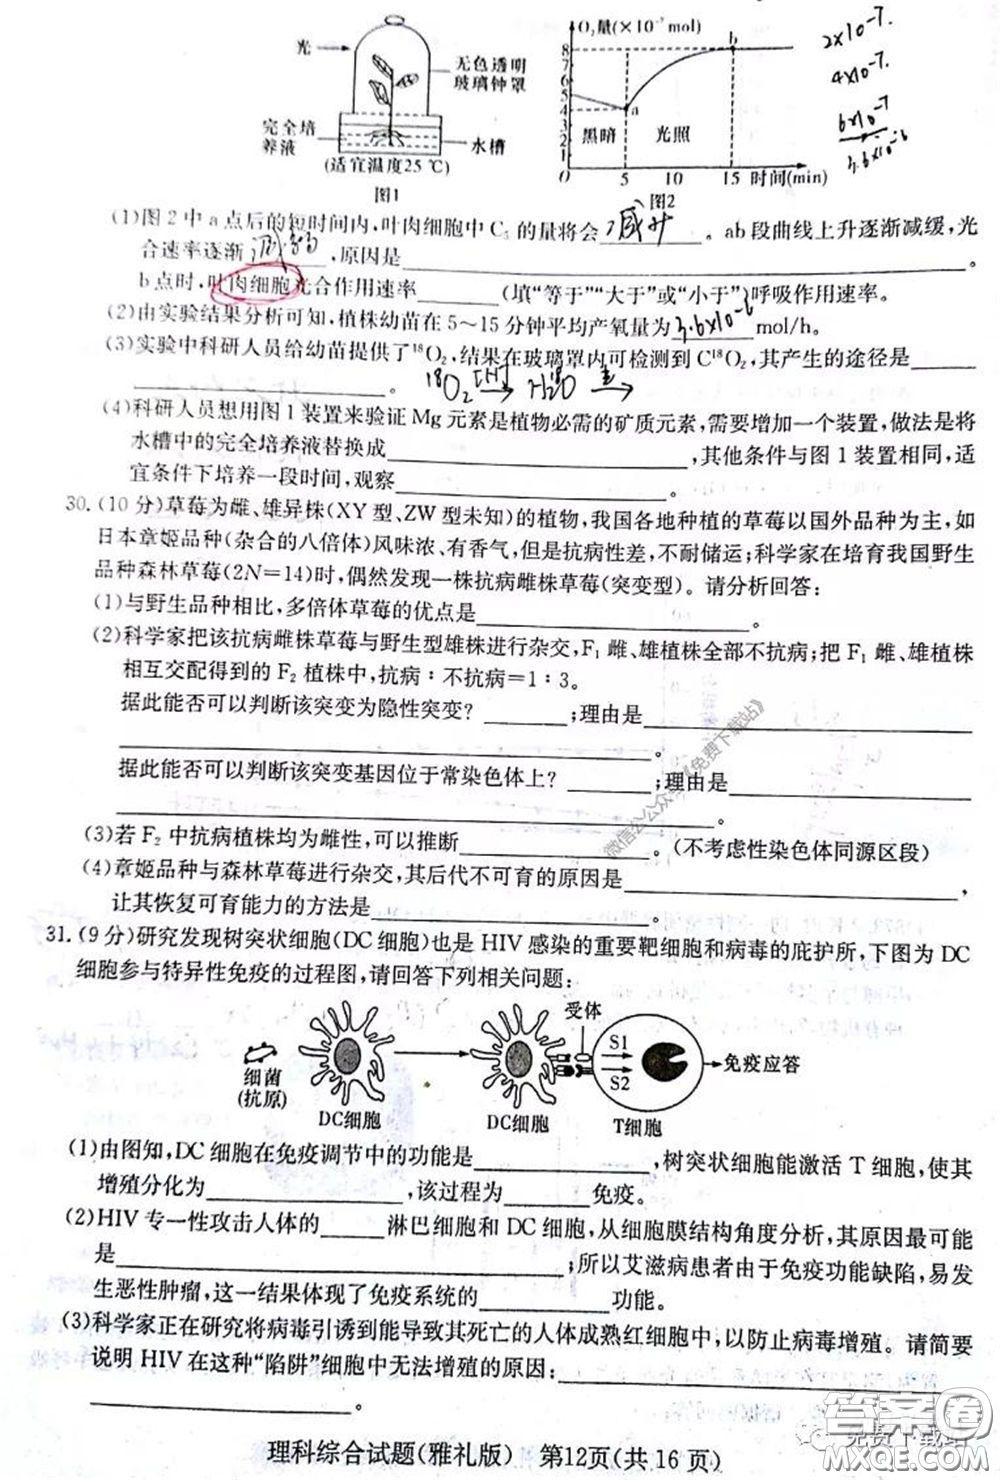 光
无色透明
玻璃钟罩
完全培
养液
水槽
(适宜温度25 ℃)
图1
O₂量(×10⁻⁷ mol)
8
7
6
5
4
3
2
1
0
a
b
黑暗
光照
5
10
15
时间(min)
图2
2×10⁻⁷
4×10⁻⁷
6×10⁻⁷
3.6×10⁻⁶
(1)图 2 中 a 点后的短时间内,叶肉细胞中 C₃ 的量将会 减少 。ab 段曲线上升逐渐减缓,光
合速率逐渐 ,原因是 。
b 点时,叶肉细胞光合作用速率 (填“等于”“大于”或“小于”)呼吸作用速率。
(2)由实验结果分析可知,植株幼苗在 5～15 分钟平均产氧量为 3.6×10⁻⁶ mol/h。
(3)实验中科研人员给幼苗提供了¹⁸O₂,结果在玻璃罩内可检测到 C¹⁸O₂,其产生的途径是
。 ¹⁸O₂ [H]→ H₂¹⁸O →
(4)科研人员想用图 1 装置来验证 Mg 元素是植物必需的矿质元素,需要增加一个装置,做法是将
水槽中的完全培养液替换成 ,其他条件与图 1 装置相同,适
宜条件下培养一段时间,观察 。
30.(10 分)草莓为雌、雄异株(XY 型、ZW 型未知)的植物,我国各地种植的草莓以国外品种为主,如
日本章姬品种(杂合的八倍体)风味浓、有香气,但是抗病性差,不耐储运;科学家在培育我国野生
品种森林草莓(2N=14)时,偶然发现一株抗病雌株草莓(突变型)。请分析回答:
(1)与野生品种相比,多倍体草莓的优点是 。
(2)科学家把该抗病雌株草莓与野生型雄株进行杂交,F₁ 雌、雄植株全部不抗病;把 F₁ 雌、雄植株
相互交配得到的 F₂ 植株中,抗病∶不抗病=1∶3。
据此能否可以判断该突变为隐性突变? ;理由是
。
据此能否可以判断该突变基因位于常染色体上? ;理由是
。
(3)若 F₂ 中抗病植株均为雌性,可以推断 。(不考虑性染色体同源区段)
(4)章姬品种与森林草莓进行杂交,其后代不可育的原因是 ,
让其恢复可育能力的方法是 。
31.(9 分)研究发现树突状细胞(DC 细胞)也是 HIV 感染的重要靶细胞和病毒的庇护所,下图为 DC
细胞参与特异性免疫的过程图,请回答下列相关问题:
细菌
(抗原)
DC细胞
DC细胞
受体
S1
S2
T细胞
免疫应答
(1)由图知,DC 细胞在免疫调节中的功能是 ,树突状细胞能激活 T 细胞,使其
增殖分化为 ,该过程为 免疫。
(2)HIV 专一性攻击人体的 淋巴细胞和 DC 细胞,从细胞膜结构角度分析,其原因最可能
是 ;所以艾滋病患者由于免疫功能缺陷,易发
生恶性肿瘤,这一结果体现了免疫系统的 功能。
(3)科学家正在研究将病毒引诱到能导致其死亡的人体成熟红细胞中,以防止病毒增殖。请简要
说明 HIV 在这种“陷阱”细胞中无法增殖的原因:
。
理科综合试题(雅礼版) 第12页(共 16 页)
答案圈